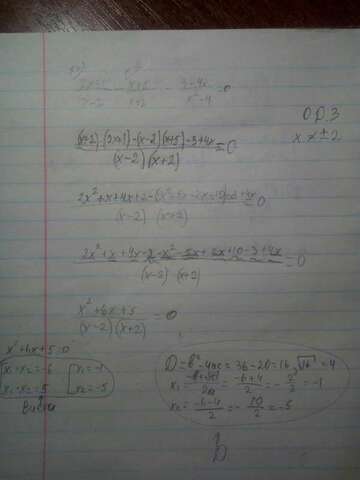 x+2 x-2
2x+1 / x-2 - x+5 / x+2 - 3-4x / x²-4 = 0
О.Д.З
(x+2)·(2x+1)-(x-2)(x+5)-3+4x / (x-2)(x+2) = 0
x ≠ ±2
2x²+x+4x+2-(x²+5x-2x-10)-3+4x / (x-2)(x+2) = 0
2x²+x+4x+2-x²-5x+2x+10-3+4x / (x-2)(x+2) = 0
x²+6x+5 / (x-2)(x+2) = 0
x²+6x+5=0
x₁+x₂=-6
x₁·x₂=5
x₁=-1
x₂=-5
Виета
D=b²-4ac=36-20=16, √16=4
x₁= / 2a = -6+4 / 2 = - 2/2 = -1
x₂= -6-4 / 2 = - 10/2 = -5